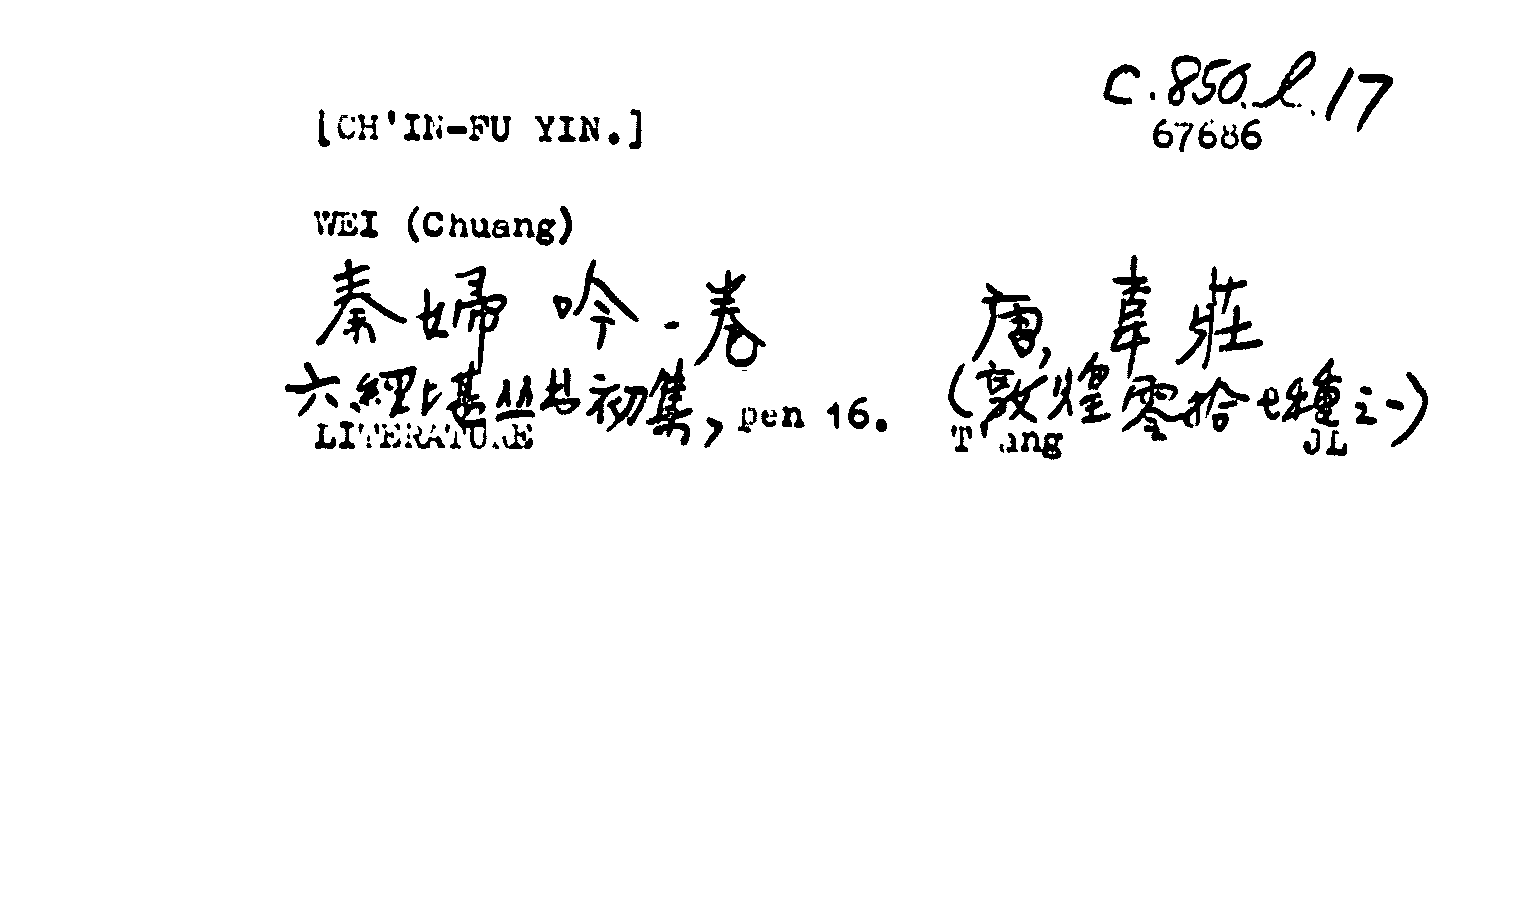 C.850.l.17
[CH'IN-FU YIN.]
67686
WEI (Chuang)
秦婦吟一卷 唐, 韋莊
六經堪丛书初集, pen 16. (敦煌零拾七種之一)
LITERATURE T'ang JL